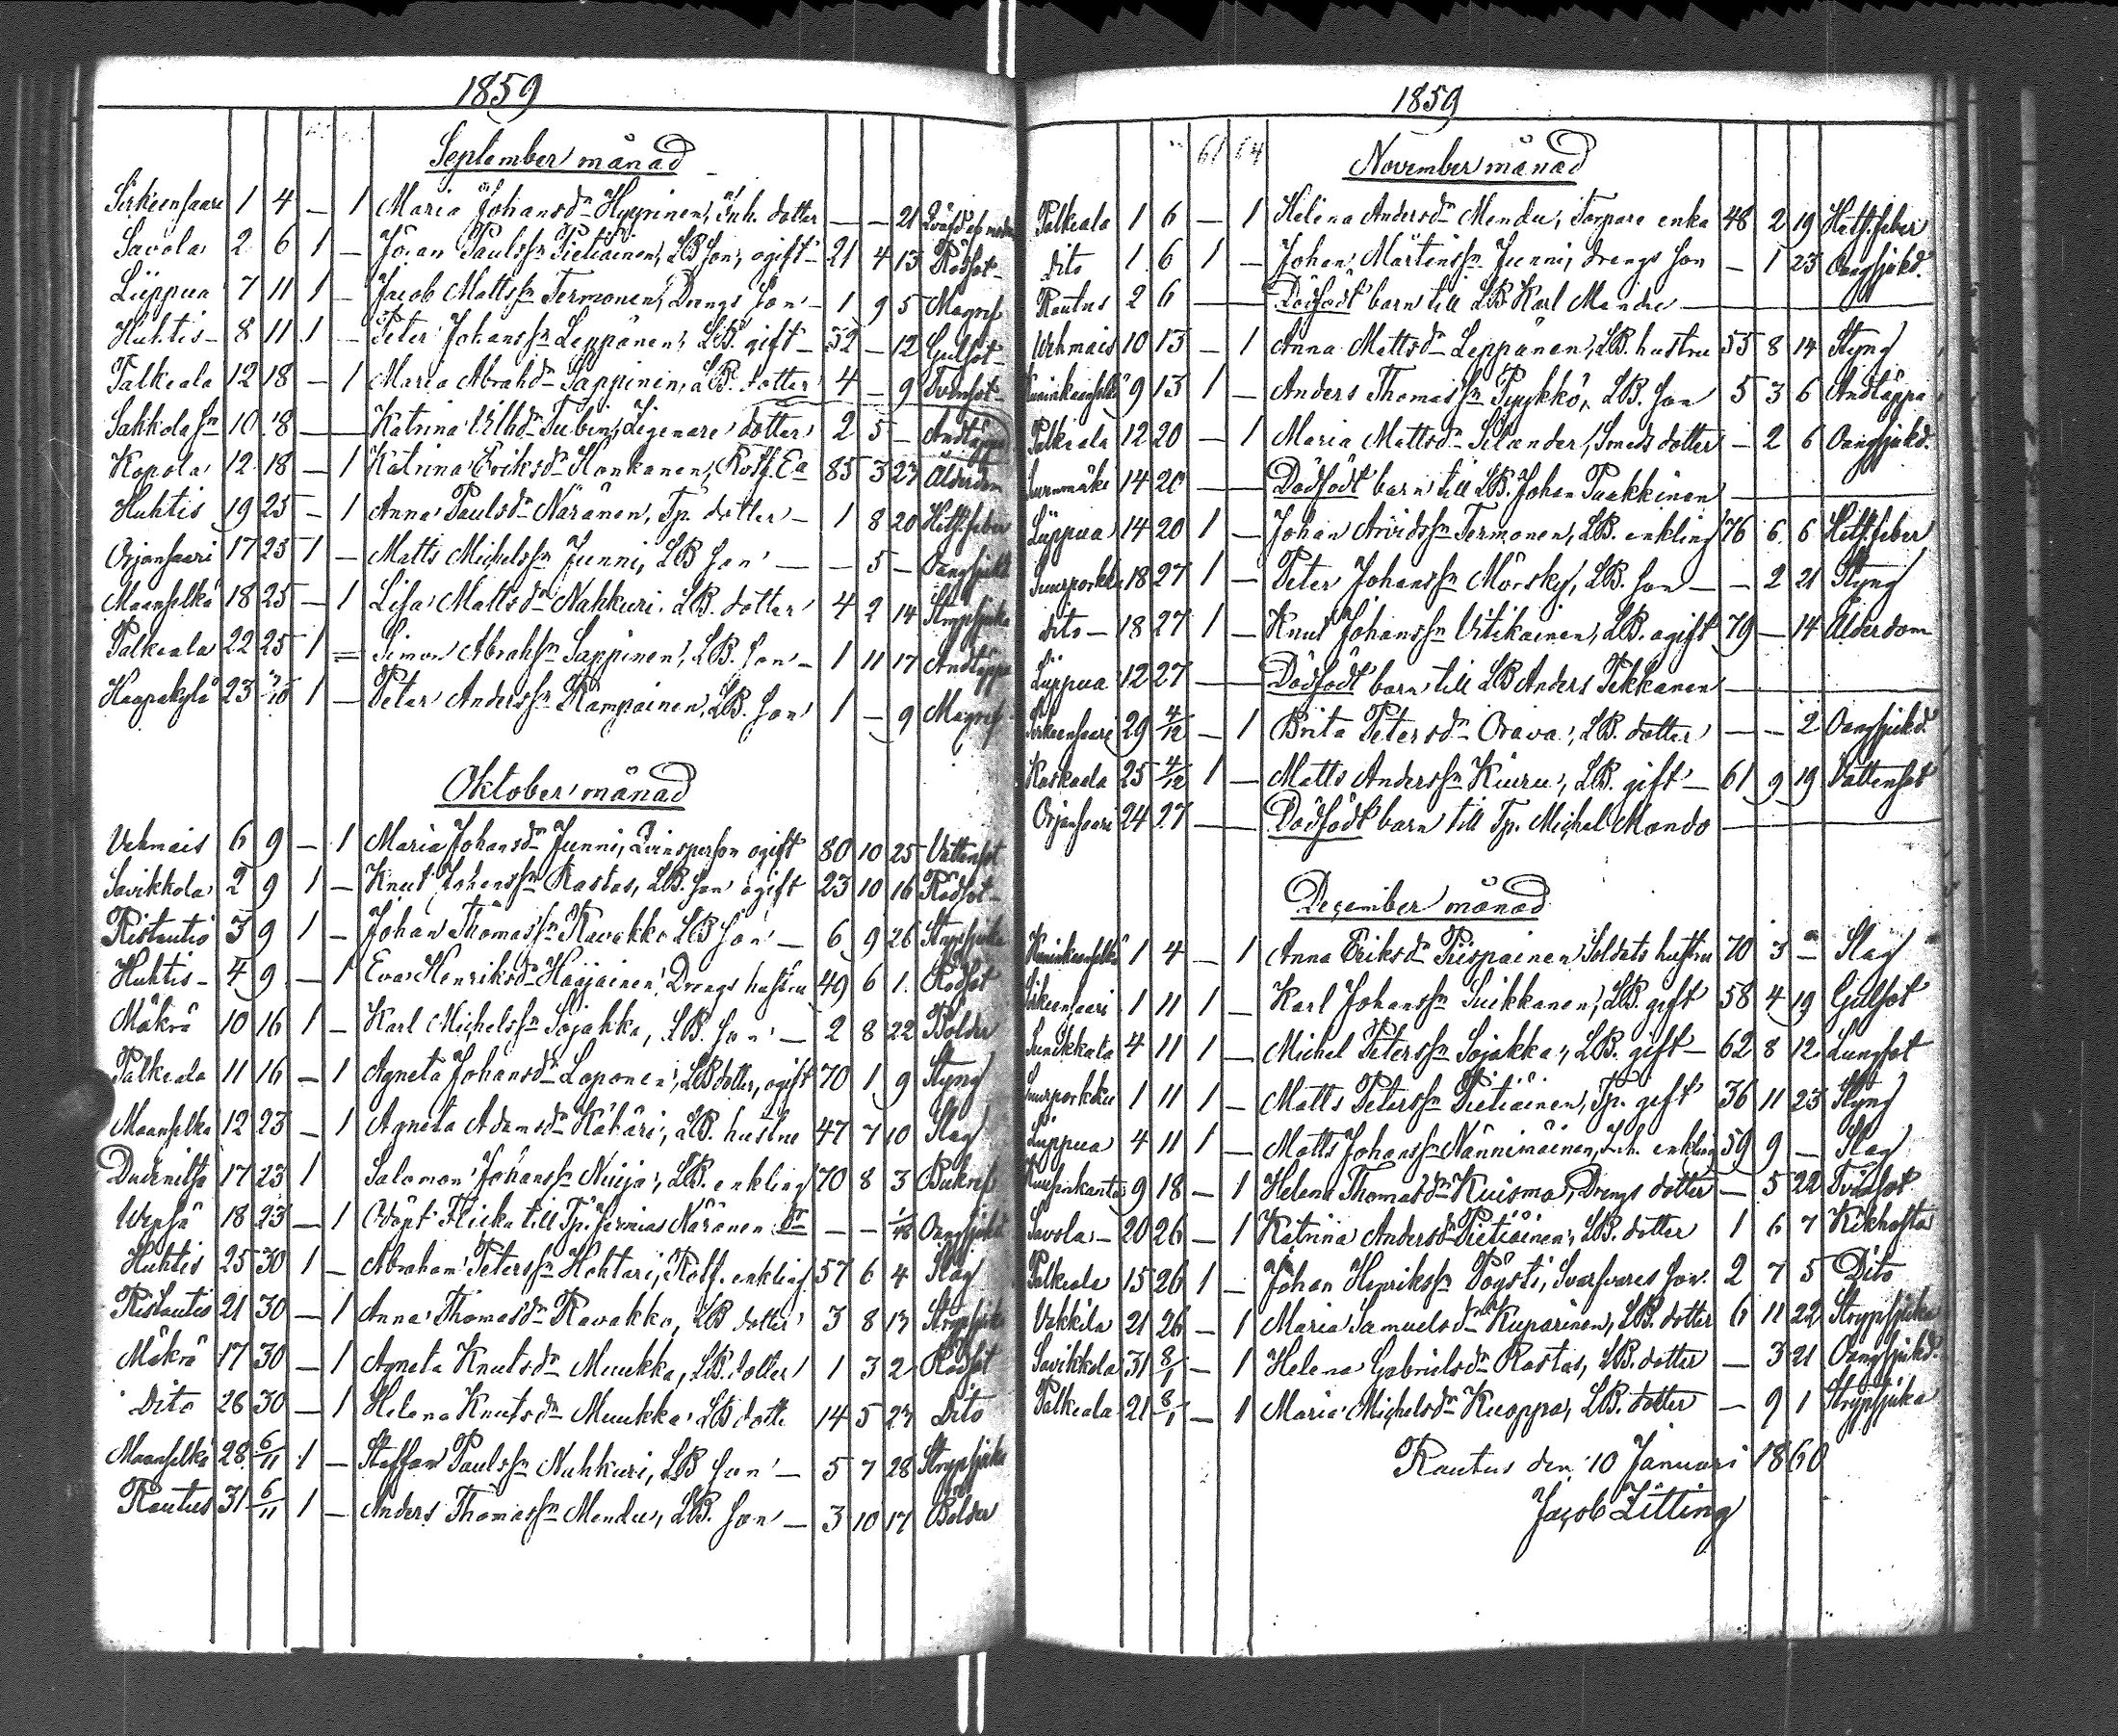 1859
September månad
Sirkeensaari 1 4 — 1 Maria Johansdr Hyyrinen, Inh. dotter — — 21
Savola 2 6 1 — Jöran Paulssn Pietiäinen, LB son, ogift 21 4 13 Rödsot
Liippua 7 11 1 — Jacob Mattssn Termonen, Drengs son — 1 9 5 Magref
Huhtis 8 11 1 — Peter Johanssn Leppänen, LB. gift — 52 — 12 Gulsot
Palkeala 12 18 — 1 Maria Abrahdr Sappinen, LB. dotter 4 — 9 Tvinsot
Sakkola sn 10 18 — — Katrina Vilhdr Tubin, Zigenare dotter 2 5 — Andtäppa
Kopola 12 18 — 1 Katrina Eriksdr Kankanen, Rotf. Ea 85 3 23 Ålderdom
Huhtis 19 25 — 1 Anna Paulsdr Näränen, Tp. dotter — 1 8 20 Hetts.feber
Orjansaari 17 25 1 — Matts Michelssn Junni, LB son — — 5 — Oangsjukd
Maanselkä 18 25 — 1 Lisa Mattsdr Nahkuri, LB. dotter 4 2 14 Strypsjuka
Palkeala 22 25 1 — Simon Abrahssn Sappinen, LB. son — 1 11 17 Andtäppa
Haapakylä 23 2/10 1 — Peter Anderssn Kämpäinen, LB. son 1 — 9 Magref
Oktober månad
Vehmais 6 9 — 1 Maria Johansdr Junni, Qvinsperson ogift 80 10 25 Vattensot
Savikkola 2 9 1 — Knut Johanssn Rastas, LB. son ogift 23 10 16 Rödsot
Ristautio 3 9 1 — Johan Thomassn Ravakko LB son — 6 9 26 Strypsjuka
Huhtis — 4 9 — 1 Eva Henriksdr Häyjäinen, Drengs hustru 49 6 1 Rödsot
Mäkrä 10 16 1 — Karl Michelssn Sojakka, LB. son — 2 8 22 Bölder
Palkeala 11 16 — 1 Agneta Johansdr Loponen, LB dotter, ogift 70 1 9 Styng
Maanselkä 12 23 — 1 Agneta Adamsdr Kähäri, LB. hustru 47 7 10 Slag
17 23 1 Salomon Johanssn Nuija, LB. enkling 70 8 3 Bukref
18 23 — 1 Odöpt Flicka till Tp. Jeremias Näränen — — 1/48 Oangsjukd
Huhtis 25 30 1 — Abraham Peterssn Hohtari, Rotf. enkling 57 6 4 Slag
Ristautio 21 30 — 1 Anna Thomasdr Ravakko, LB dotter 3 8 13 Strypsjuka
Mäkrä 17 30 — 1 Agneta Knutsdr Muukka, LB. dotter 1 3 2 Rödsot
Dito 26 30 — 1 Helena Knutsdr Muukka, LB dotte 14 5 27 Dito
Maanselkä 28 6/11 1 — Staffan Paulssn Nuhkuri, LB son — 5 7 28 Strypsjuka
Rautus 31 6/11 1 — Anders Thomassn Mendu, LB. son — 3 10 17 Bölder
1859
November månad
Palkeala 1 6 — 1 Helena Andersdr Mendu, Torpare enka 48 2 19 Hetts.feber
dito 1 6 1 — Johan Mårtenssn Junni, drengs son — 1 23 Oangsjukd.
Rautus 2 6 — — Dödfödt barn till LB Karl Mendu —
Vehmais 10 13 — 1 Anna Mattsdr Leppänen, LB. hustru 55 8 14 Styng
9 13 1 — Anders Thomassn Pyykkö, LB. son 5 3 6 Andtäppa
Palkeala 12 20 — 1 Maria Mattsdr Selander, Smeds dotter — 2 6 Oangsjukd.
Suurmäki 14 20 — — Dödfödt barn till LB. Johan Paakkinen —
Liippua 14 20 1 — Johan Arvidssn Termonen, LB. enkling 76 6 6 Hetts.feber
Suurporkku 18 27 1 — Peter Johanssn Mörsky, LB. son — — 2 21 Styng
dito — 18 27 1 — Knut Johanssn Vitikainen, LB. ogift 79 — 14 Ålderdom
Liippua 12 27 — — Dödfödt barn till LB Anders Pekkanen —
Sirkeensaari 29 4/12 — 1 Brita Petersdr Orava, LB. dotter — — 2 Oangsjukd
Raskeala 25 4/12 1 — Matts Anderssn Kiuru, LB. gift — 61 9 19 Vattensot
Orjansaari 24 27 — — Dödfödt barn till Tp. Michel Mondo —
December månad
1 4 — 1 Anna Eriksdr Piispainen Soldats hustru 70 3 — Slag
Sirkeensaari 1 11 1 — Karl Johanssn Suikkanen, LB. gift 58 4 19 Gulsot
Sunikkala 4 11 1 — Michel Peterssn Sojakka, LB. gift — 62 8 12 Lungsot
Suurporkku 1 11 1 — Matts Peterssn Pietiäinen, Tp. gift 36 11 23 Styng
Liippua 4 11 1 — Matts Johanssn Nännimäinen, Inh. enkling 59 9 — Slag
9 18 — 1 Helena Thomasdr Kuisma, Drengs dotter — 5 22 Tvinsot
Savola — 20 26 — 1 Katrina Andersdr Pietiäinen, LB. dotter 1 6 7 Kikhosta
Palkeala 15 26 1 — Johan Henrikssn Pöysti, Svarfvares son 2 7 5 Dito
Vakkila 21 26 — 1 Maria Samuelsdr Kuparinen, LB. dotter 6 11 22 Strypsjuka
Savikkola 31 8/1 — 1 Helena Gabrielsdr Rastas, LB. dotter — 3 21 Oangsjukd.
Palkeala 21 8/1 — 1 Maria Michelsdr Kuoppa, LB. dotter — 9 1 Strypsjuka
Rautus den 10 Januari 1860
Jacob Zitting